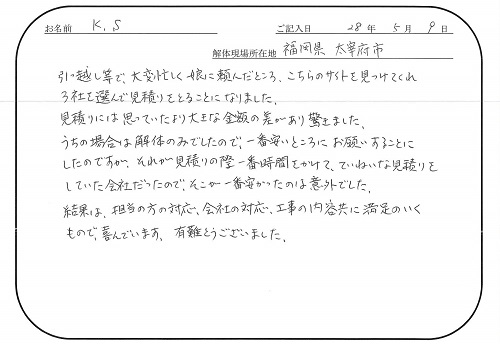 お名前 K.S ご記入日 28年 5月 9日
解体現場所在地 福岡県 太宰府市
引っ越し等で、大変忙しく娘に頼んだところ、こちらのサイトを見つけてくれ
3社を選んで見積りをとることになりました。
見積りには思っていたより大きな金額の差があり驚きました。
うちの場合は解体のみでしたので、一番安いところにお願いすることに
したのですが、それが見積りの際一番時間をかけて、ていねいな見積りを
していた会社だったので、そこが一番安かったのは意外でした。
結果は、担当の方の対応、会社の対応、工事の内容共に満足のいく
もので、喜んでいます。有難とうございました。